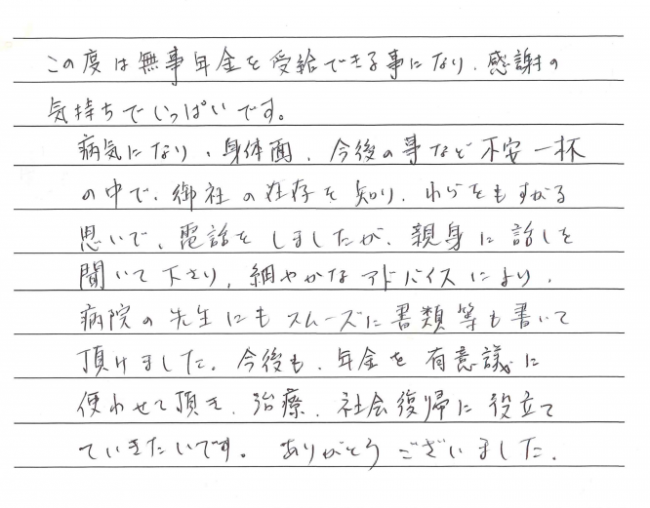 この度は無事年金を受給できる事になり、感謝の
気持ちでいっぱいです。
病気になり、身体面、今後の事など不安一杯
の中で、御社の在存を知り、わらをもすがる
思いで、電話をしましたが、親身に話しを
聞いて下さり、細やかなアドバイスにより、
病院の先生にもスムーズに書類等も書いて
頂けました。今後も、年金を有意議に
使わせて頂き、治療、社会復帰に役立て
ていきたいです。ありがとうございました。